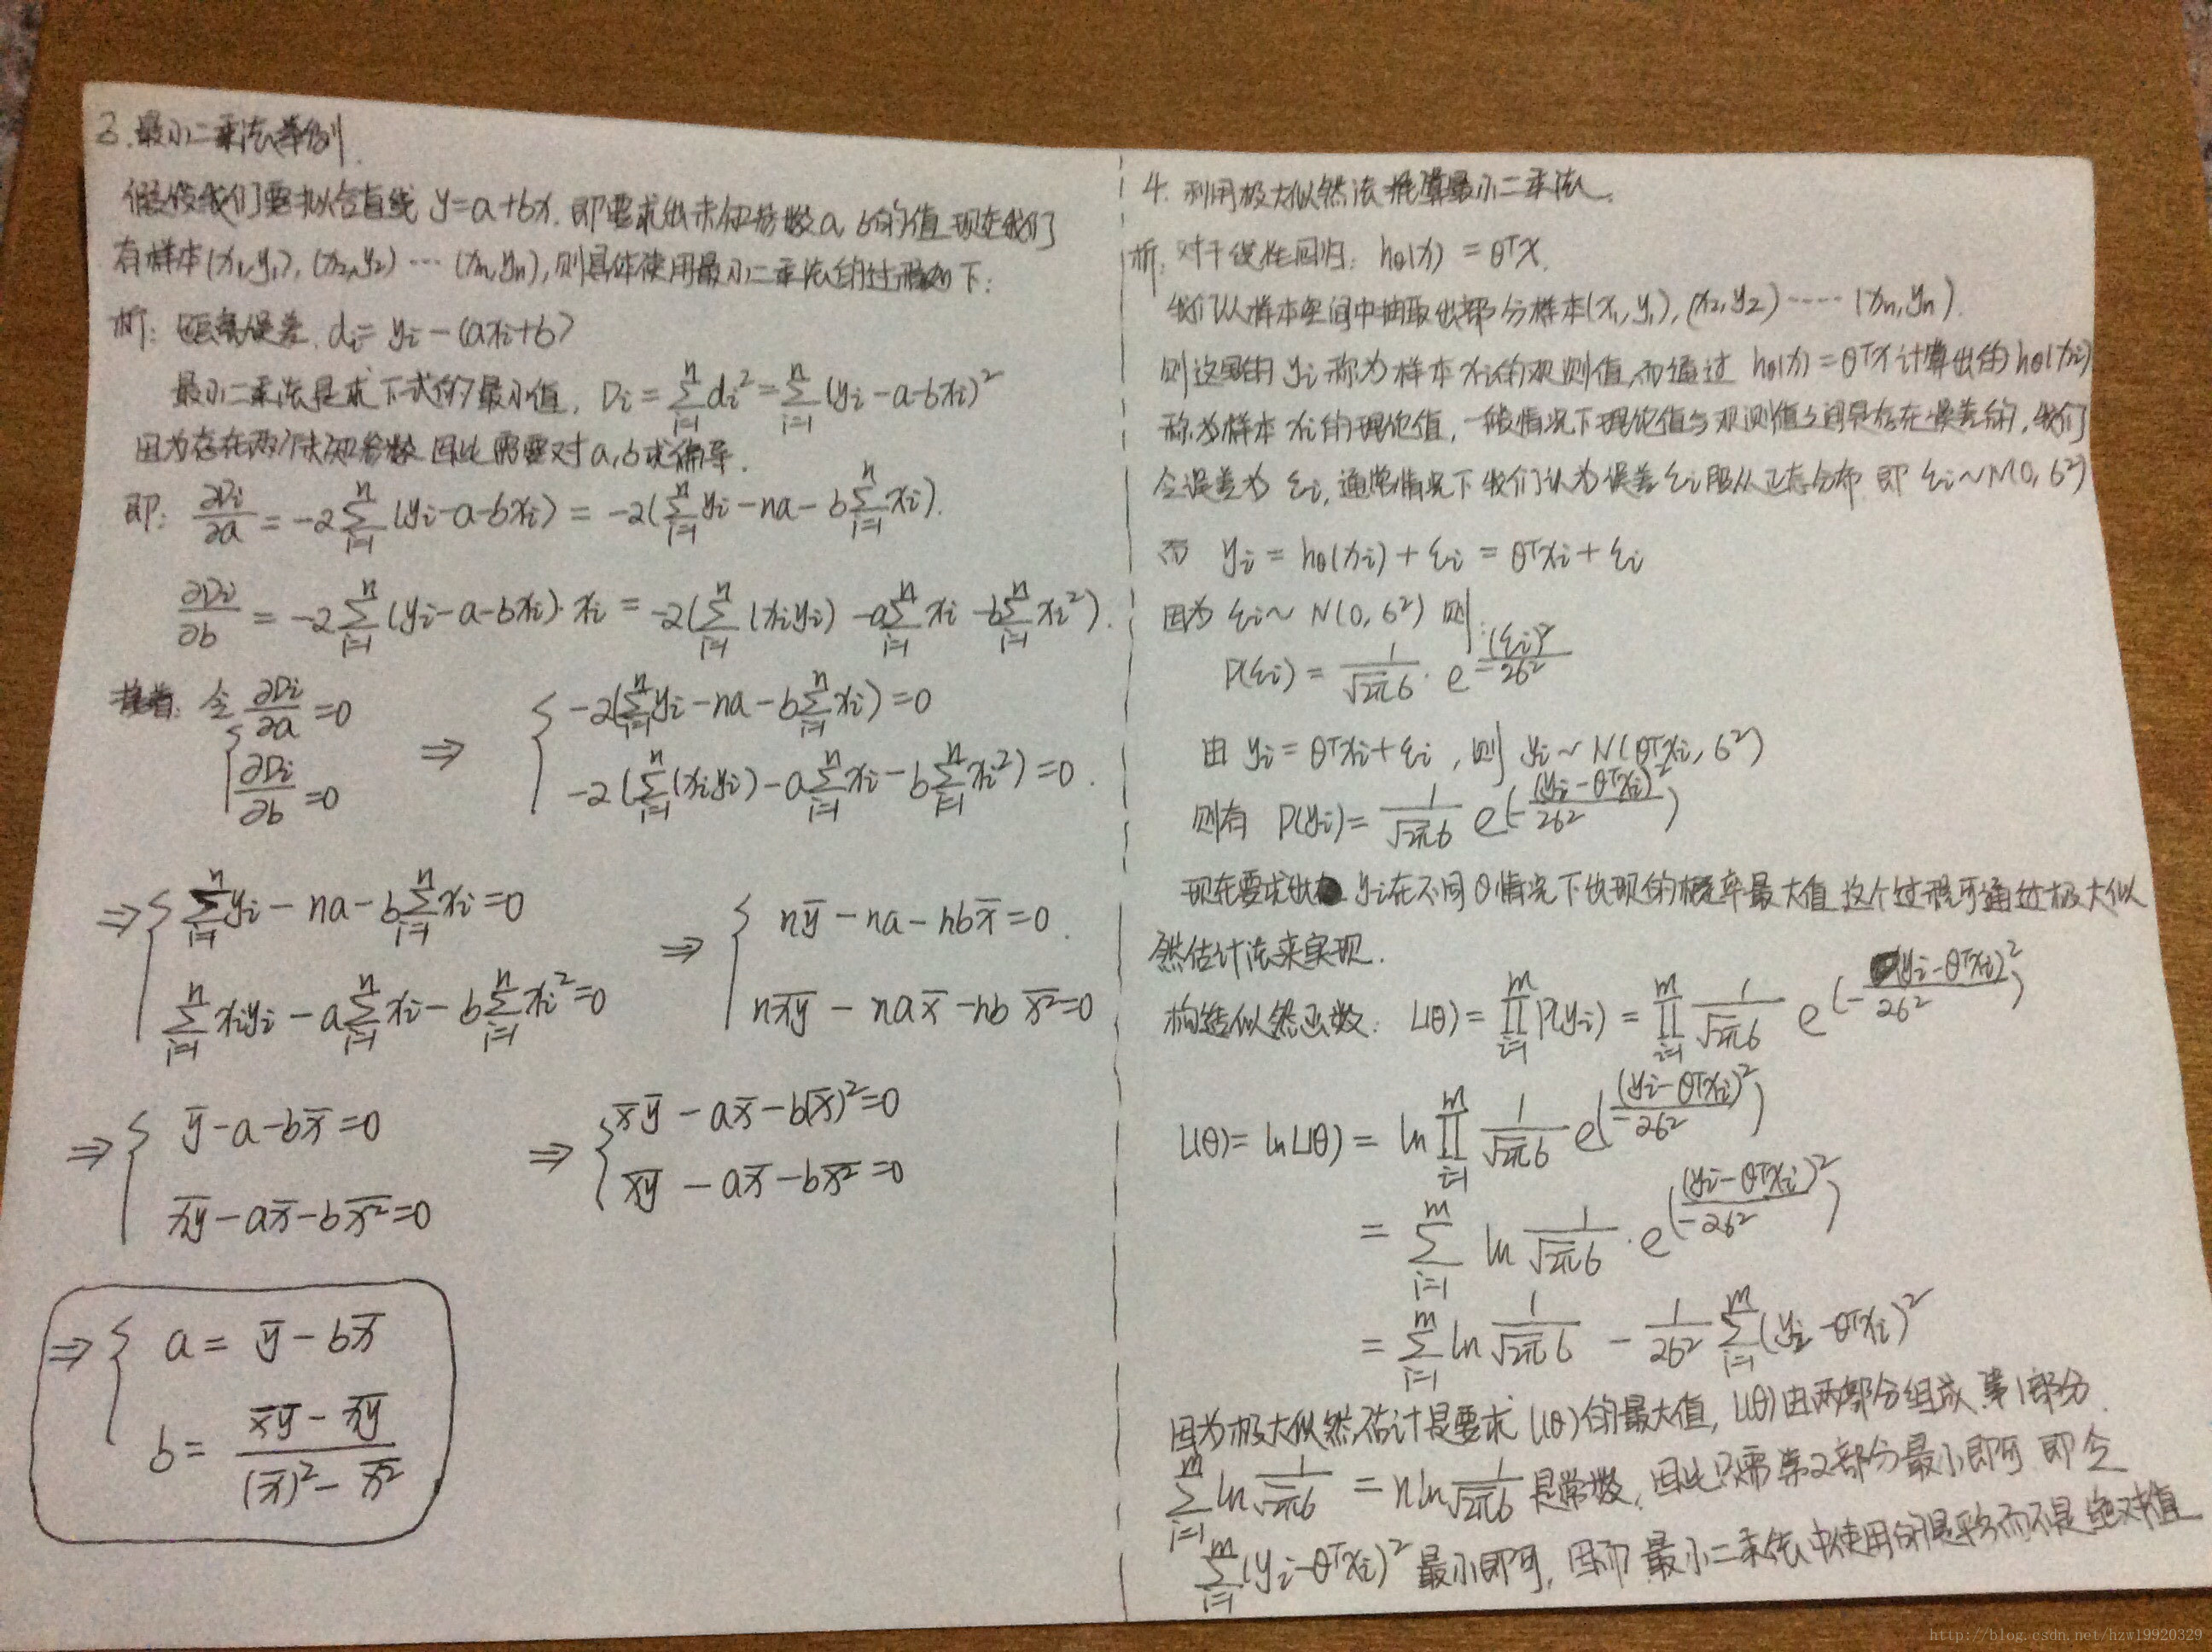 3. 最小二乘法举例.
假设我们要拟合直线 y=a+bx. 即要求出未知参数a, b的值 现在我们
有样本(x₁,y₁), (x₂,y₂) ⋯ (xn,yn), 则具体使用最小二乘法的过程如下:
析: 距离误差. di = yi-(axi+b)
最小二乘法是求下式的最小值, Di = ∑_{i=1}^{n} di² = ∑_{i=1}^{n} (yi-a-bxi)²
因为存在两个未知参数 因此需要对a,b求偏导.
即: ∂Di/∂a = -2∑_{i=1}^{n} (yi-a-bxi) = -2(∑_{i=1}^{n} yi - na - b∑_{i=1}^{n} xi).
∂Di/∂b = -2∑_{i=1}^{n} (yi-a-bxi)·xi = -2(∑_{i=1}^{n} (xiyi) - a∑_{i=1}^{n} xi - b∑_{i=1}^{n} xi²).
接着: 令 { ∂Di/∂a = 0 ⇒ { -2(∑_{i=1}^{n} yi - na - b∑_{i=1}^{n} xi) = 0
∂Di/∂b = 0 -2(∑_{i=1}^{n} (xiyi) - a∑_{i=1}^{n} xi - b∑_{i=1}^{n} xi²) = 0.
⇒ { ∑_{i=1}^{n} yi - na - b∑_{i=1}^{n} xi = 0 ⇒ { nȳ - na - nbx̄ = 0.
∑_{i=1}^{n} xiyi - a∑_{i=1}^{n} xi - b∑_{i=1}^{n} xi² = 0 n\overline{xy} - nax̄ - nb\overline{x²} = 0
⇒ { ȳ - a - bx̄ = 0 ⇒ { x̄ȳ - ax̄ - b(x̄)² = 0
\overline{xy} - ax̄ - b\overline{x²} = 0 \overline{xy} - ax̄ - b\overline{x²} = 0
⇒ { a = ȳ - bx̄
b = (x̄ȳ - \overline{xy}) / ((x̄)² - \overline{x²})
4. 利用极大似然法推算最小二乘法.
析: 对于线性回归: hθ(x) = θᵀx.
我们从样本空间中抽取出部分样本(x₁,y₁), (x₂,y₂) ⋯⋯ (xn,yn).
则这里的 yi 称为样本 xi 的观测值 而通过 hθ(x) = θᵀx 计算出的 hθ(xi)
称为样本 xi 的理论值, 一般情况下理论值与观测值之间是存在误差的, 我们
令误差为 εi, 通常情况下我们认为误差 εi 服从正态分布 即 εi ~ N(0, 6²)
而 yi = hθ(xi) + εi = θᵀxi + εi
因为 εi ~ N(0, 6²) 则:
P(εi) = 1/(√2π 6) · e^{-(εi)²/26²}
由 yi = θᵀxi + εi, 则 yi ~ N(θᵀxi, 6²)
则有 P(yi) = 1/(√2π 6) e^(-(yi-θᵀxi)²/26²)
现在要求出 yi 在不同θ情况下出现的概率最大值 这个过程可通过极大似
然估计法来实现.
构造似然函数: L(θ) = ∏_{i=1}^{m} P(yi) = ∏_{i=1}^{m} 1/(√2π 6) e^(-(yi-θᵀxi)²/26²)
l(θ) = lnL(θ) = ln∏_{i=1}^{m} 1/(√2π 6) e^((yi-θᵀxi)²/-26²)
= ∑_{i=1}^{m} ln 1/(√2π 6) · e^((yi-θᵀxi)²/-26²)
= ∑_{i=1}^{m} ln 1/(√2π 6) - 1/26² ∑_{i=1}^{m} (yi-θᵀxi)²
因为极大似然估计是要求 l(θ) 的最大值, l(θ) 由两部分组成 第1部分
∑_{i=1}^{m} ln 1/(√2π 6) = n ln 1/(√2π 6) 是常数, 因此只需第2部分最小即可 即令
∑_{i=1}^{m} (yi-θᵀxi)² 最小即可, 因而 最小二乘法中使用的是平方而不是绝对值
http://blog.csdn.net/hzw19920329